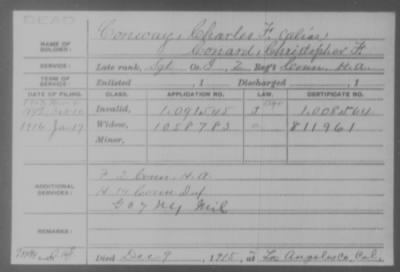 DEAD
NAME OF SOLDIER: Conway, Charles F. alias
Conard, Christopher F.
SERVICE: Late rank, Sgt Co. I, 2 Reg't Conn. H.A.
TERM OF SERVICE Enlisted , 1 Discharged , 1
DATE OF FILING. CLASS. APPLICATION NO. LAW. CERTIFICATE NO.
Invalid, 1,091,545 1,008,864
1916 Jan 17 Widow, 1058783 811961
Minor,
ADDITIONAL SERVICES: F 2 Conn. H.A.
H 14 Conn Inf
G 67 Mil
REMARKS:
Died Dec 9, 1915, at Los Angeles Co., Cal.